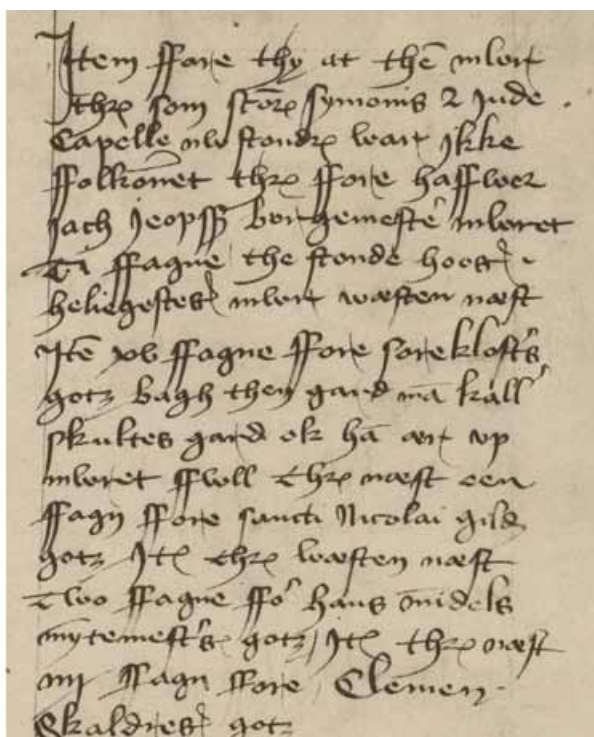 Item ffore thy at thē mwr
thr som scōr symonis 2 Jude
Capelle nw stondr war Jkke
ffolkōmet thr ffore haffwer
Jach Jeopss borgemestē mwret
ffagne the stonde hoos
heliegestes mwr wæsten næst
Jtē xv ffagne ffore sore klosts
gotz bagh then gard mā kall
skultes gard ok hā ær vp
mwret ffwll thr næst een
ffagn ffore sancti Nicolai gild
gotz Jt thr wæsten næst
Two ffagne ffo hans midels
mytemests gotz Jt thr næst
iiij ffagn ffore Clemen
Skaldres gotz